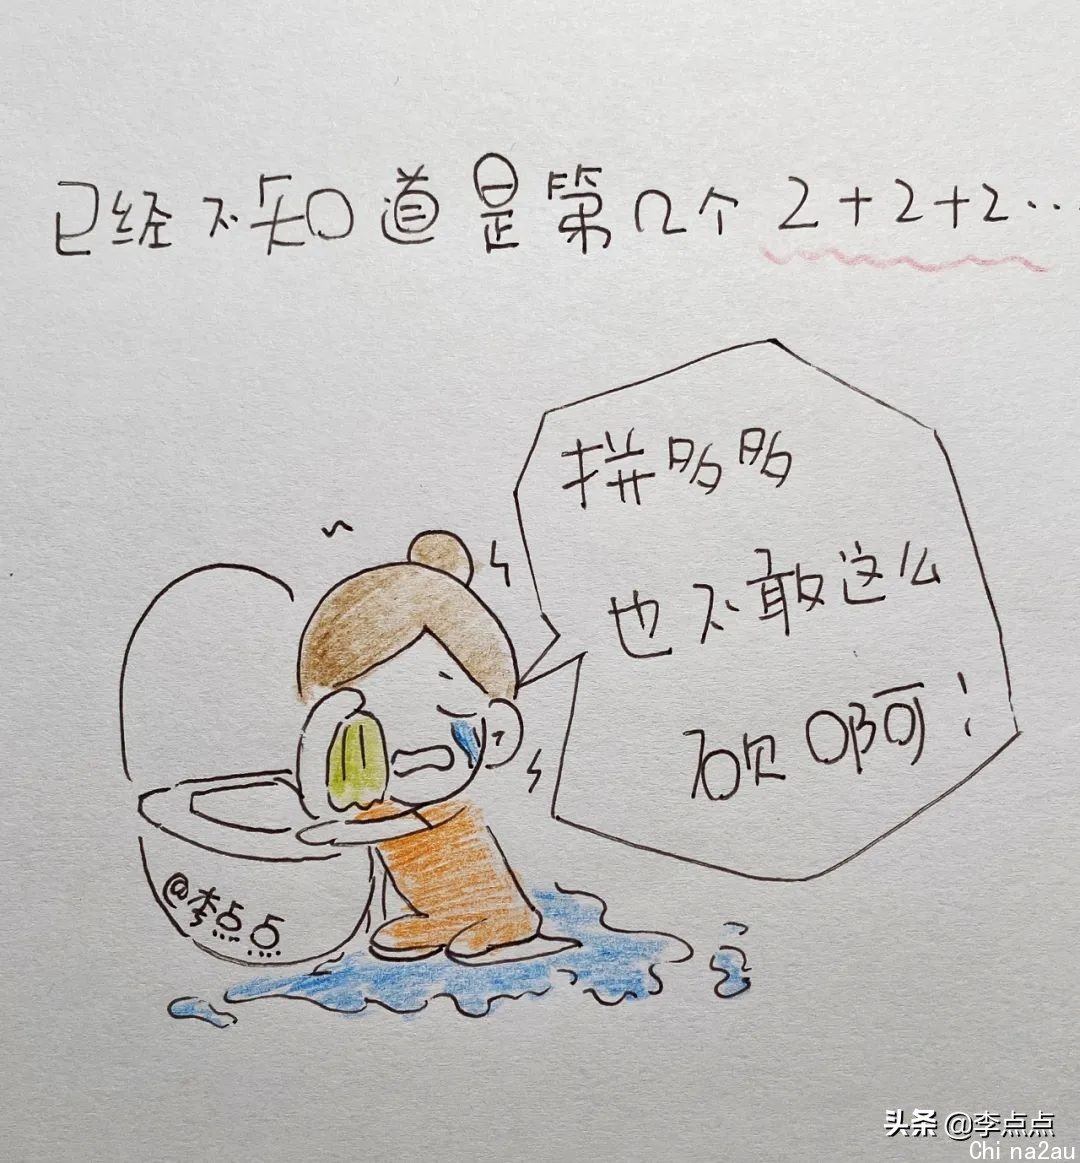 已经不知道是第几个2+2+2...
拼多多
也不敢这么
砍啊!
@李点点
头条 @李点点
Chi na2au